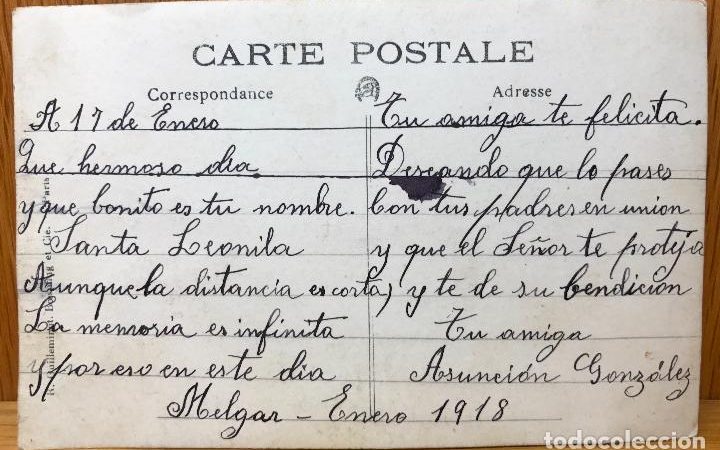 CARTE POSTALE
Correspondance
Adresse
A 17 de Enero
Que hermoso dia
y que bonito es tu nombre.
Santa Leonila
Aunque la distancia es corta)
La memoria es infinita
y por eso en este dia
Tu amiga te felicita.
Deseando que lo pases
Con tus padres en union
y que el Señor te proteja
y te de su bendición
Tu amiga
Asunción González
Melgar - Enero 1918
et Cie.
todocoleccion.net